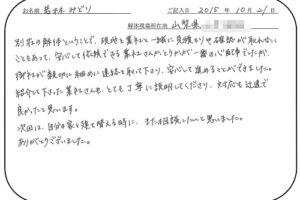 お名前 若林 みどり ご記入日 2015年10月21日
解体現場所在地 山梨県
別荘の解体ということで、現地と業者と一緒に見積りや確認が取れない
こともあって、安心して依頼できる業者さんかどうかが一番の心配事でしたが、
親切に細めに連絡を取って下さり、安心して進めることができました。
紹介して下さった業者さんも、とても丁寧に説明してくださり、対応も迅速で
良かったと思います。
次回は、自分の家を建て替える時に、また相談したいと思いました。
ありがとうございました。